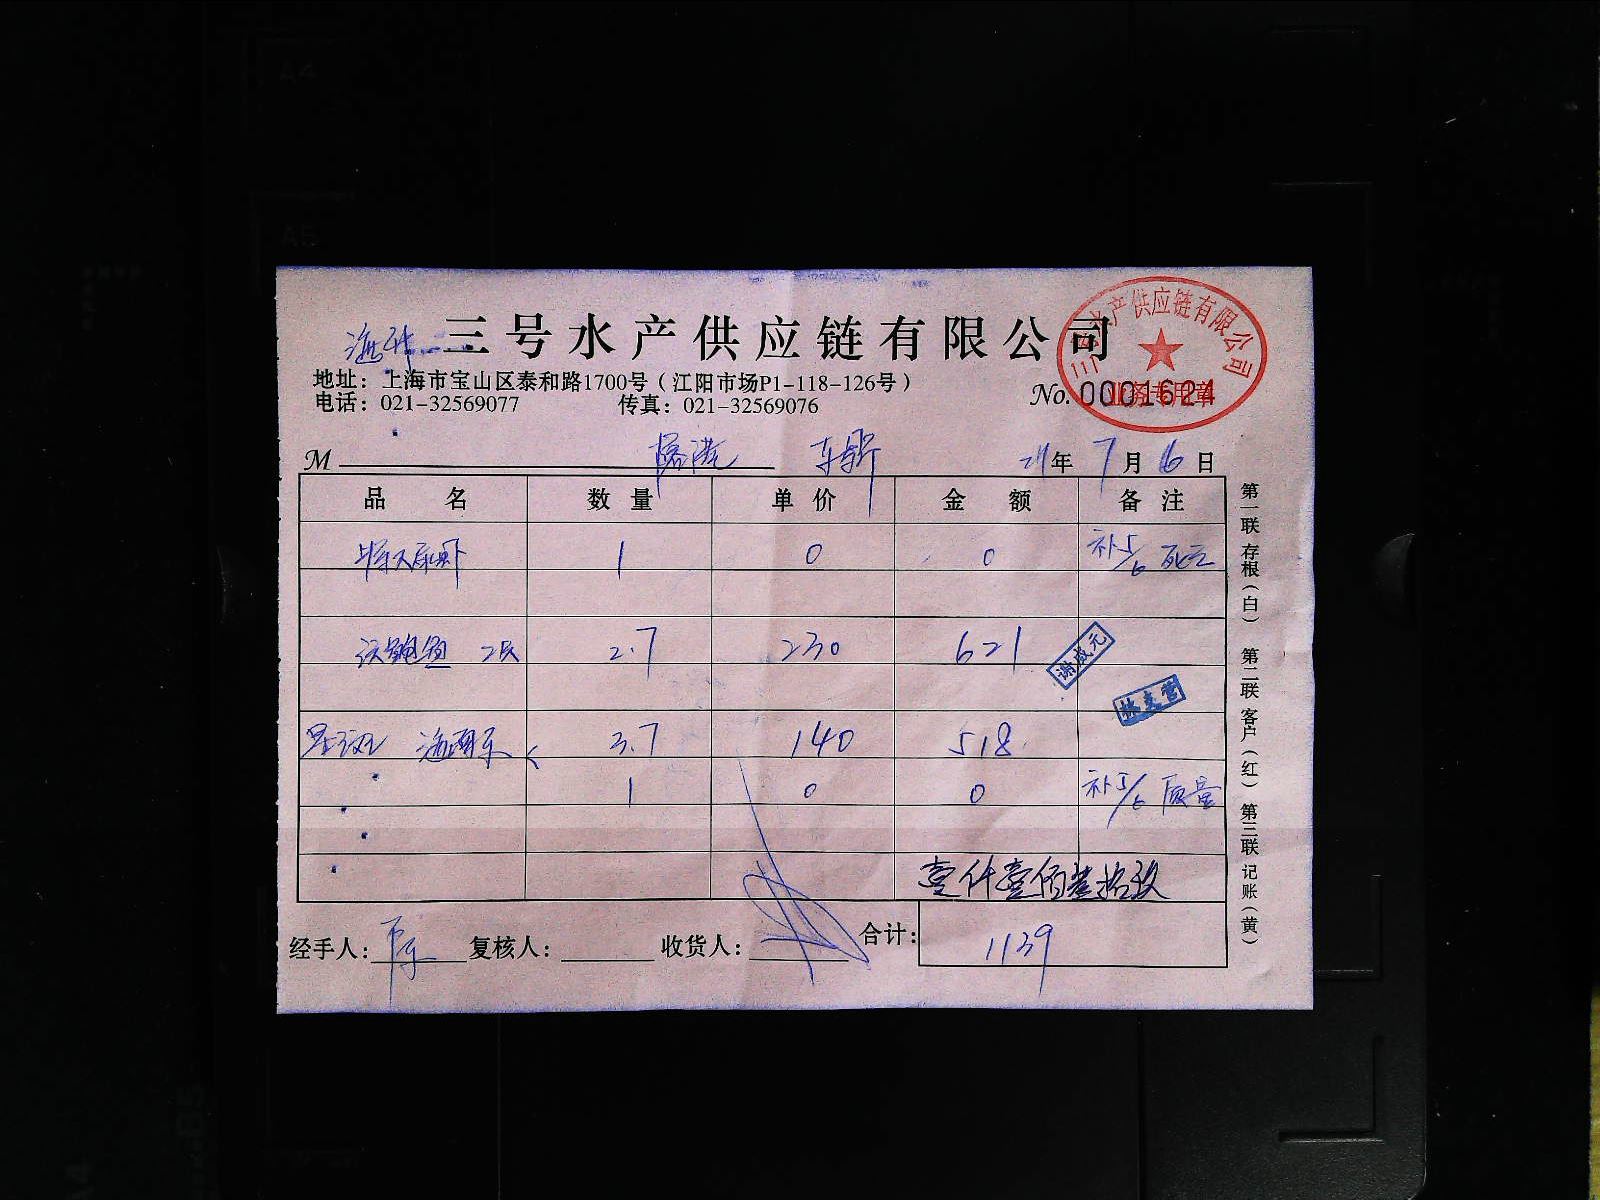 三号水产供应链有限公司
地址：上海市宝山区泰和路1700号（江阳市场P1-118-126号）
电话：021-32569077 传真：021-32569076
No. 0001624
三号水产供应链有限公司
业务专用章
M 21年 7月 16日
品名 数量 单价 金额 备注
1 0 0 补5/6 死亡
2.7 230 621
谢成元
3.7 140 518
1 0 0 补5/6 质量
壹仟壹佰叁拾玖
经手人： 复核人： 收货人： 合计： 1139
第一联 存根（白） 第二联 客户（红） 第三联 记账（黄）